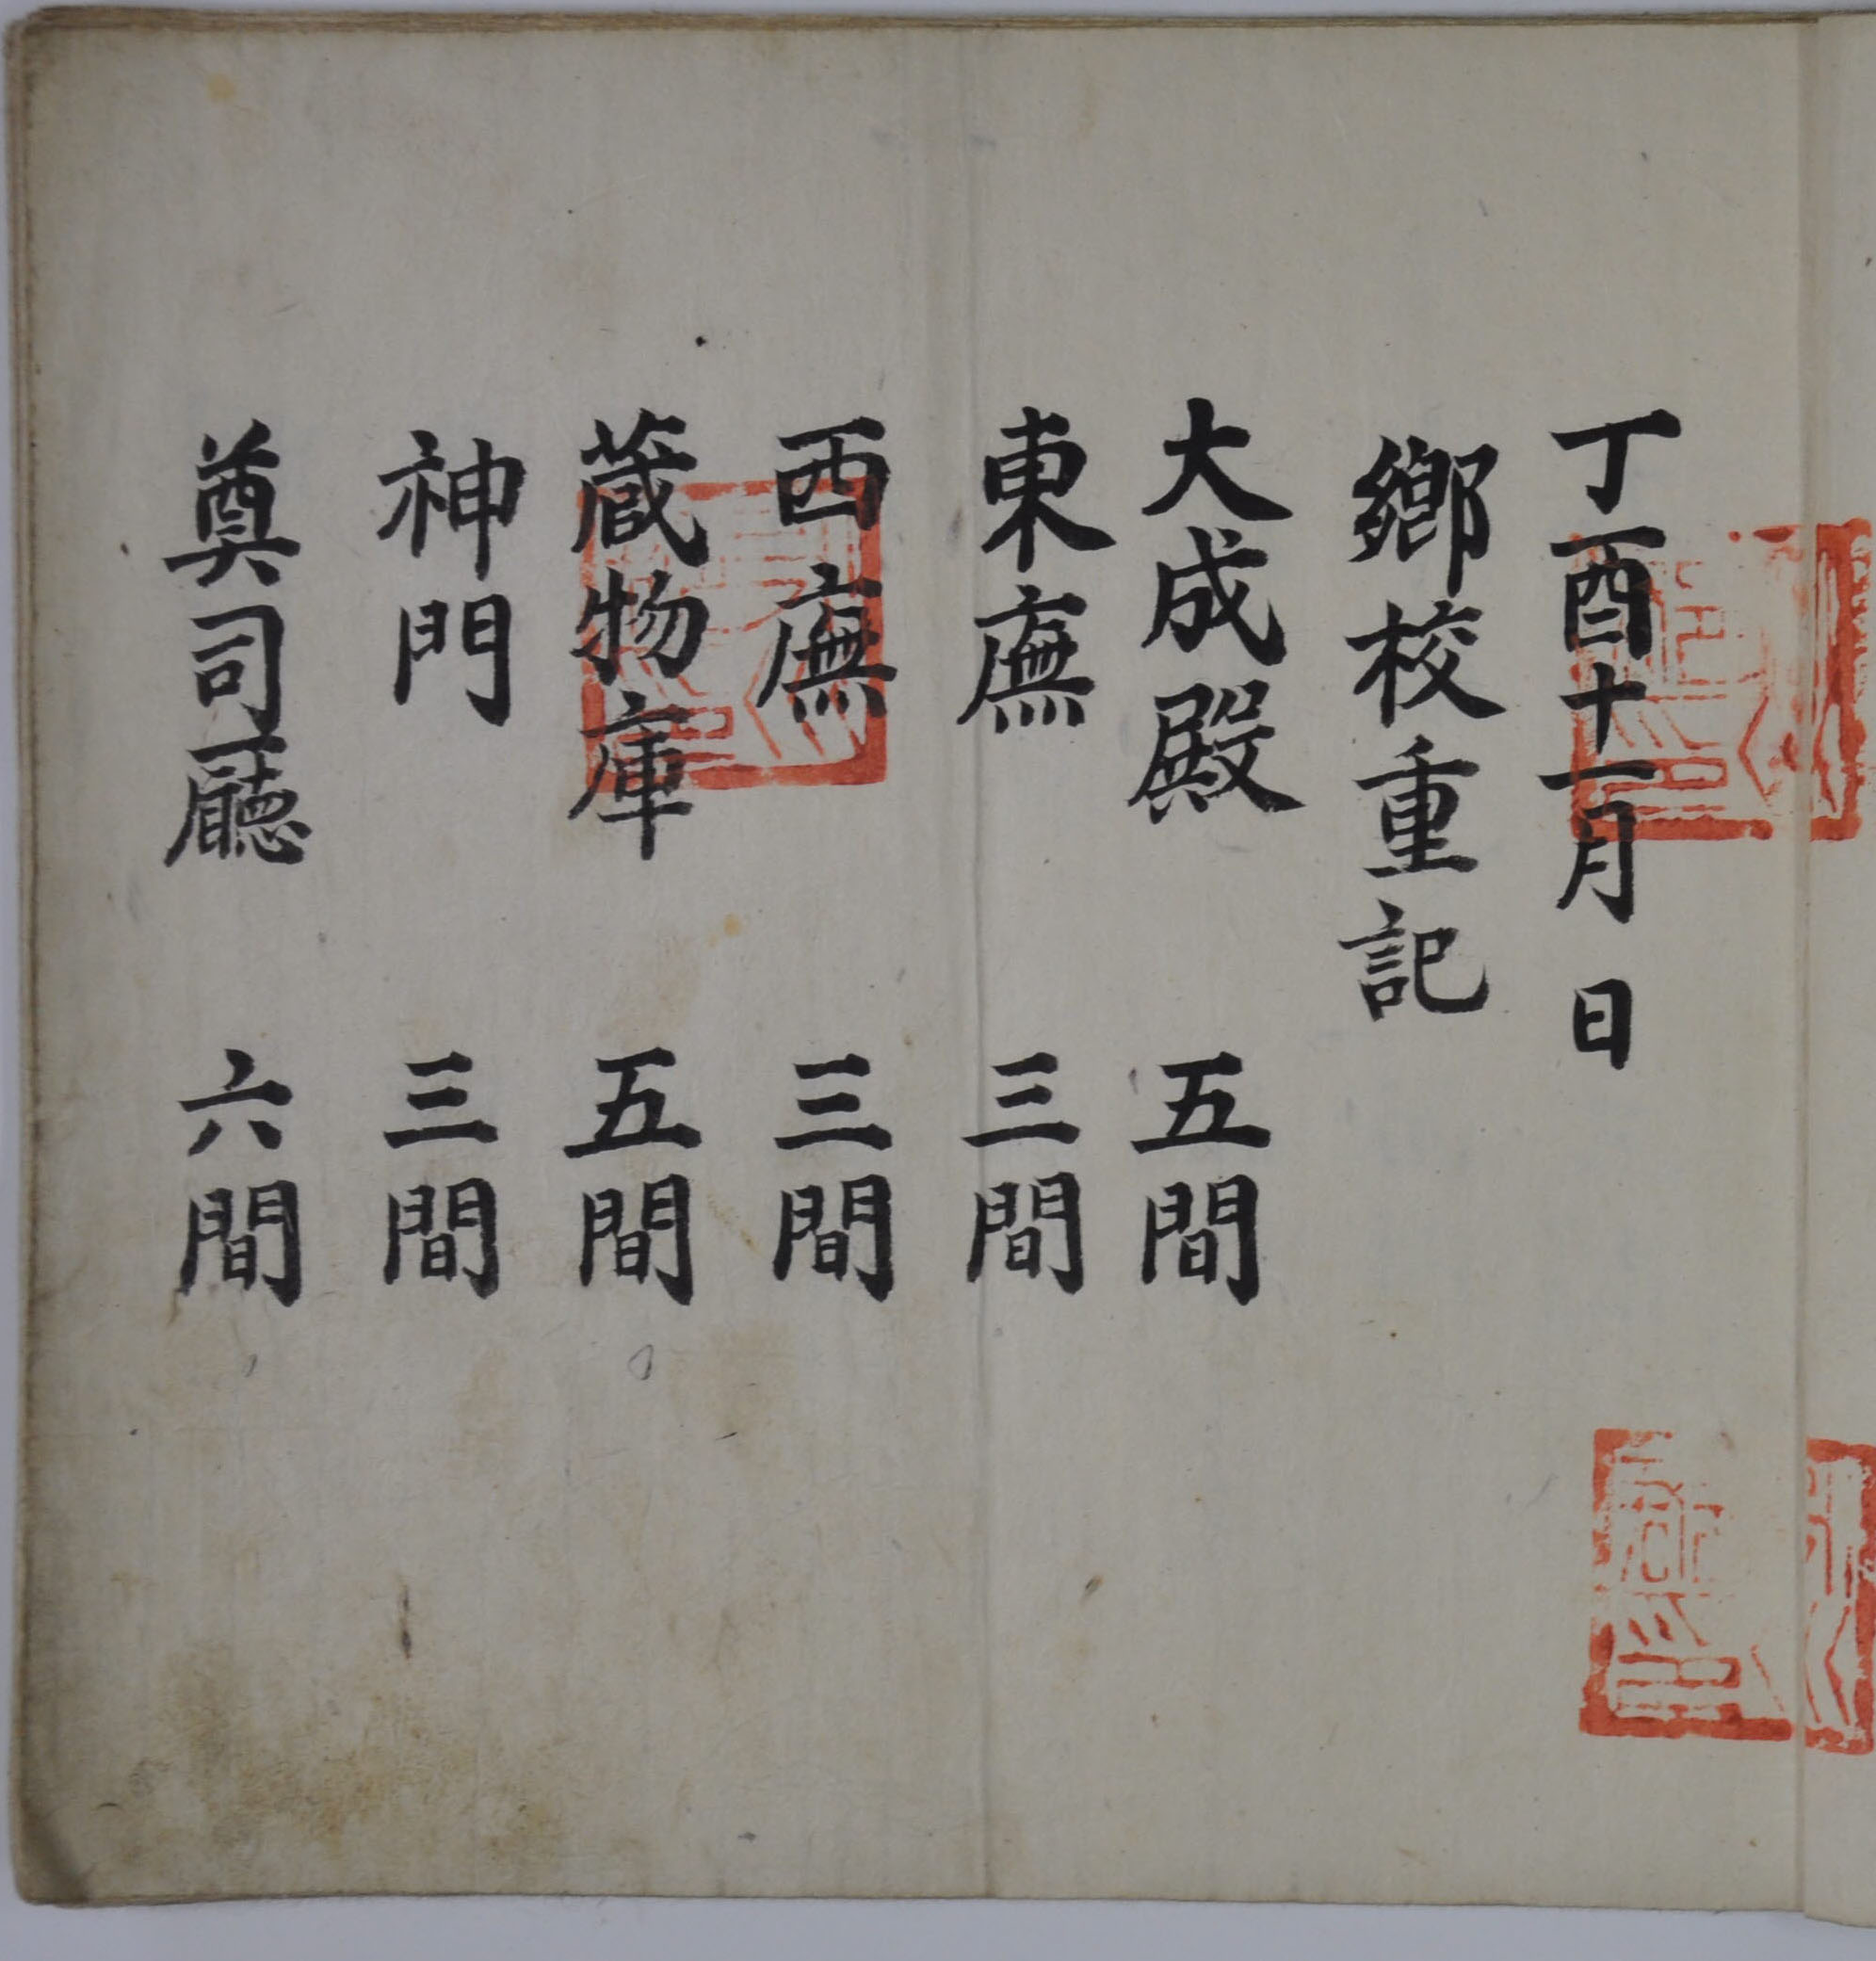 丁酉十一月 日
鄕校重記
大成殿 五間
東廡 三間
西廡 三間
蔵物庫 五間
神門 三間
奠司廳 六間